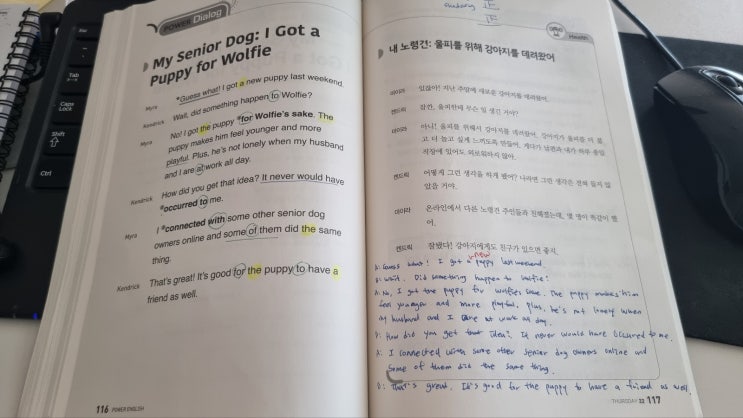 POWER Dialog
My Senior Dog: I Got a
Puppy for Wolfie
Myra
*Guess what! I got a new puppy last weekend.
Kendrick
Wait, did something happen to Wolfie?
Myra
No! I got the puppy *for Wolfie's sake. The
puppy makes him feel younger and more
playful. Plus, he's not lonely when my husband
and I are at work all day.
Kendrick
How did you get that idea? It never would have
*occurred to me.
Myra
I *connected with some other senior dog
owners online and some of them did the same
thing.
Kendrick
That's great! It's good for the puppy to have a
friend as well.
116 POWER ENGLISH
Health
내 노령견: 울피를 위해 강아지를 데려왔어
마이라
있잖아! 지난 주말에 새로운 강아지를 데려왔어.
켄드릭
잠깐, 울피한테 무슨 일 생긴 거야?
마이라
아니! 울피를 위해서 강아지를 데려왔어. 강아지가 울피를 더 젊
고 더 놀고 싶게 느끼도록 만들어. 게다가 남편과 내가 하루 종일
직장에 있어도 외로워하지 않아.
켄드릭
어떻게 그런 생각을 하게 됐어? 나라면 그런 생각은 전혀 들지 않
았을 거야.
마이라
온라인에서 다른 노령견 주인들과 친해졌는데, 몇 명이 똑같이 했
어.
켄드릭
잘됐다! 강아지에게도 친구가 있으면 좋지.
A: Guess what! I got a new puppy last weekend.
B: Wait. Did something happen to Wolfie?
A: No, I got the puppy for wolfie's sake. The puppy makes him
feel younger and more playful. Plus, he's not lonely when
my husband and I are at work all day.
B: How did you get that idea? It never would have occurred to me.
A: I connected with some other senior dog owners online and
some of them did the same thing.
B: That's great. It's good for the puppy to have a friend as well.
THURSDAY 22 117
Tab
Caps Lock
Shift
Ctrl